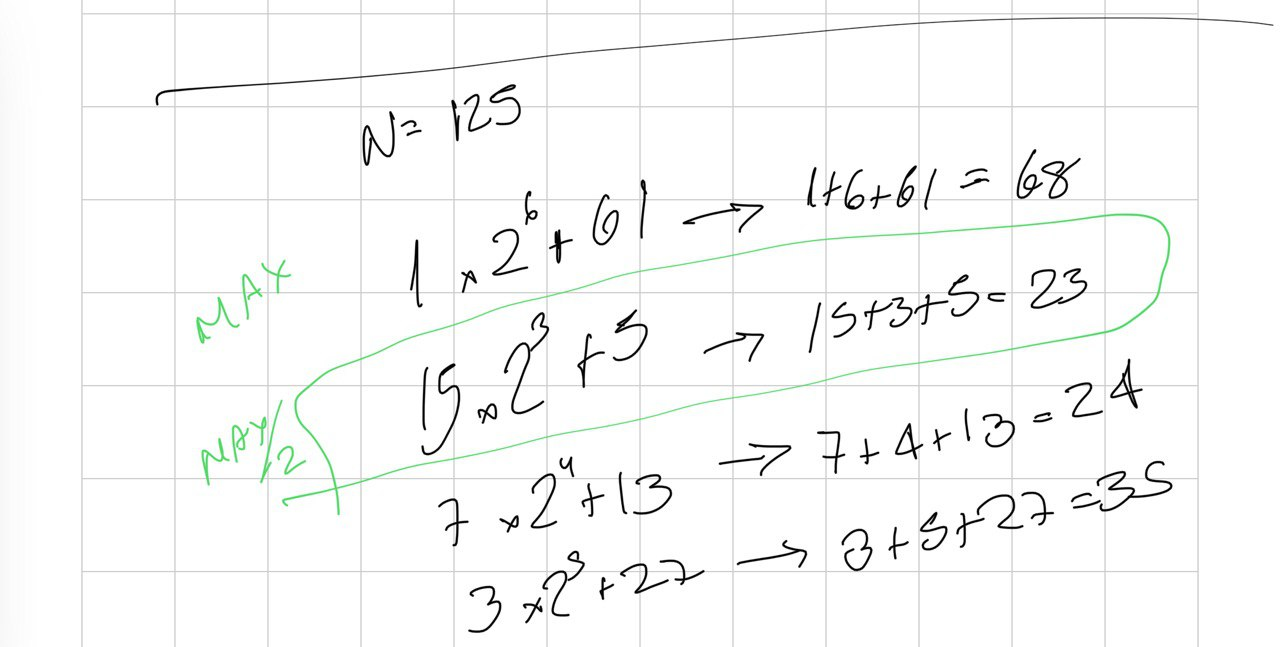 N= 125
1 × 2^6 + 61 → 1+6+61 = 68
MAX
15 × 2^3 + 5 → 15+3+5= 23
MAX/2
7 × 2^4 + 13 → 7+4+13 = 24
3 × 2^5 + 27 → 3+5+27 =35